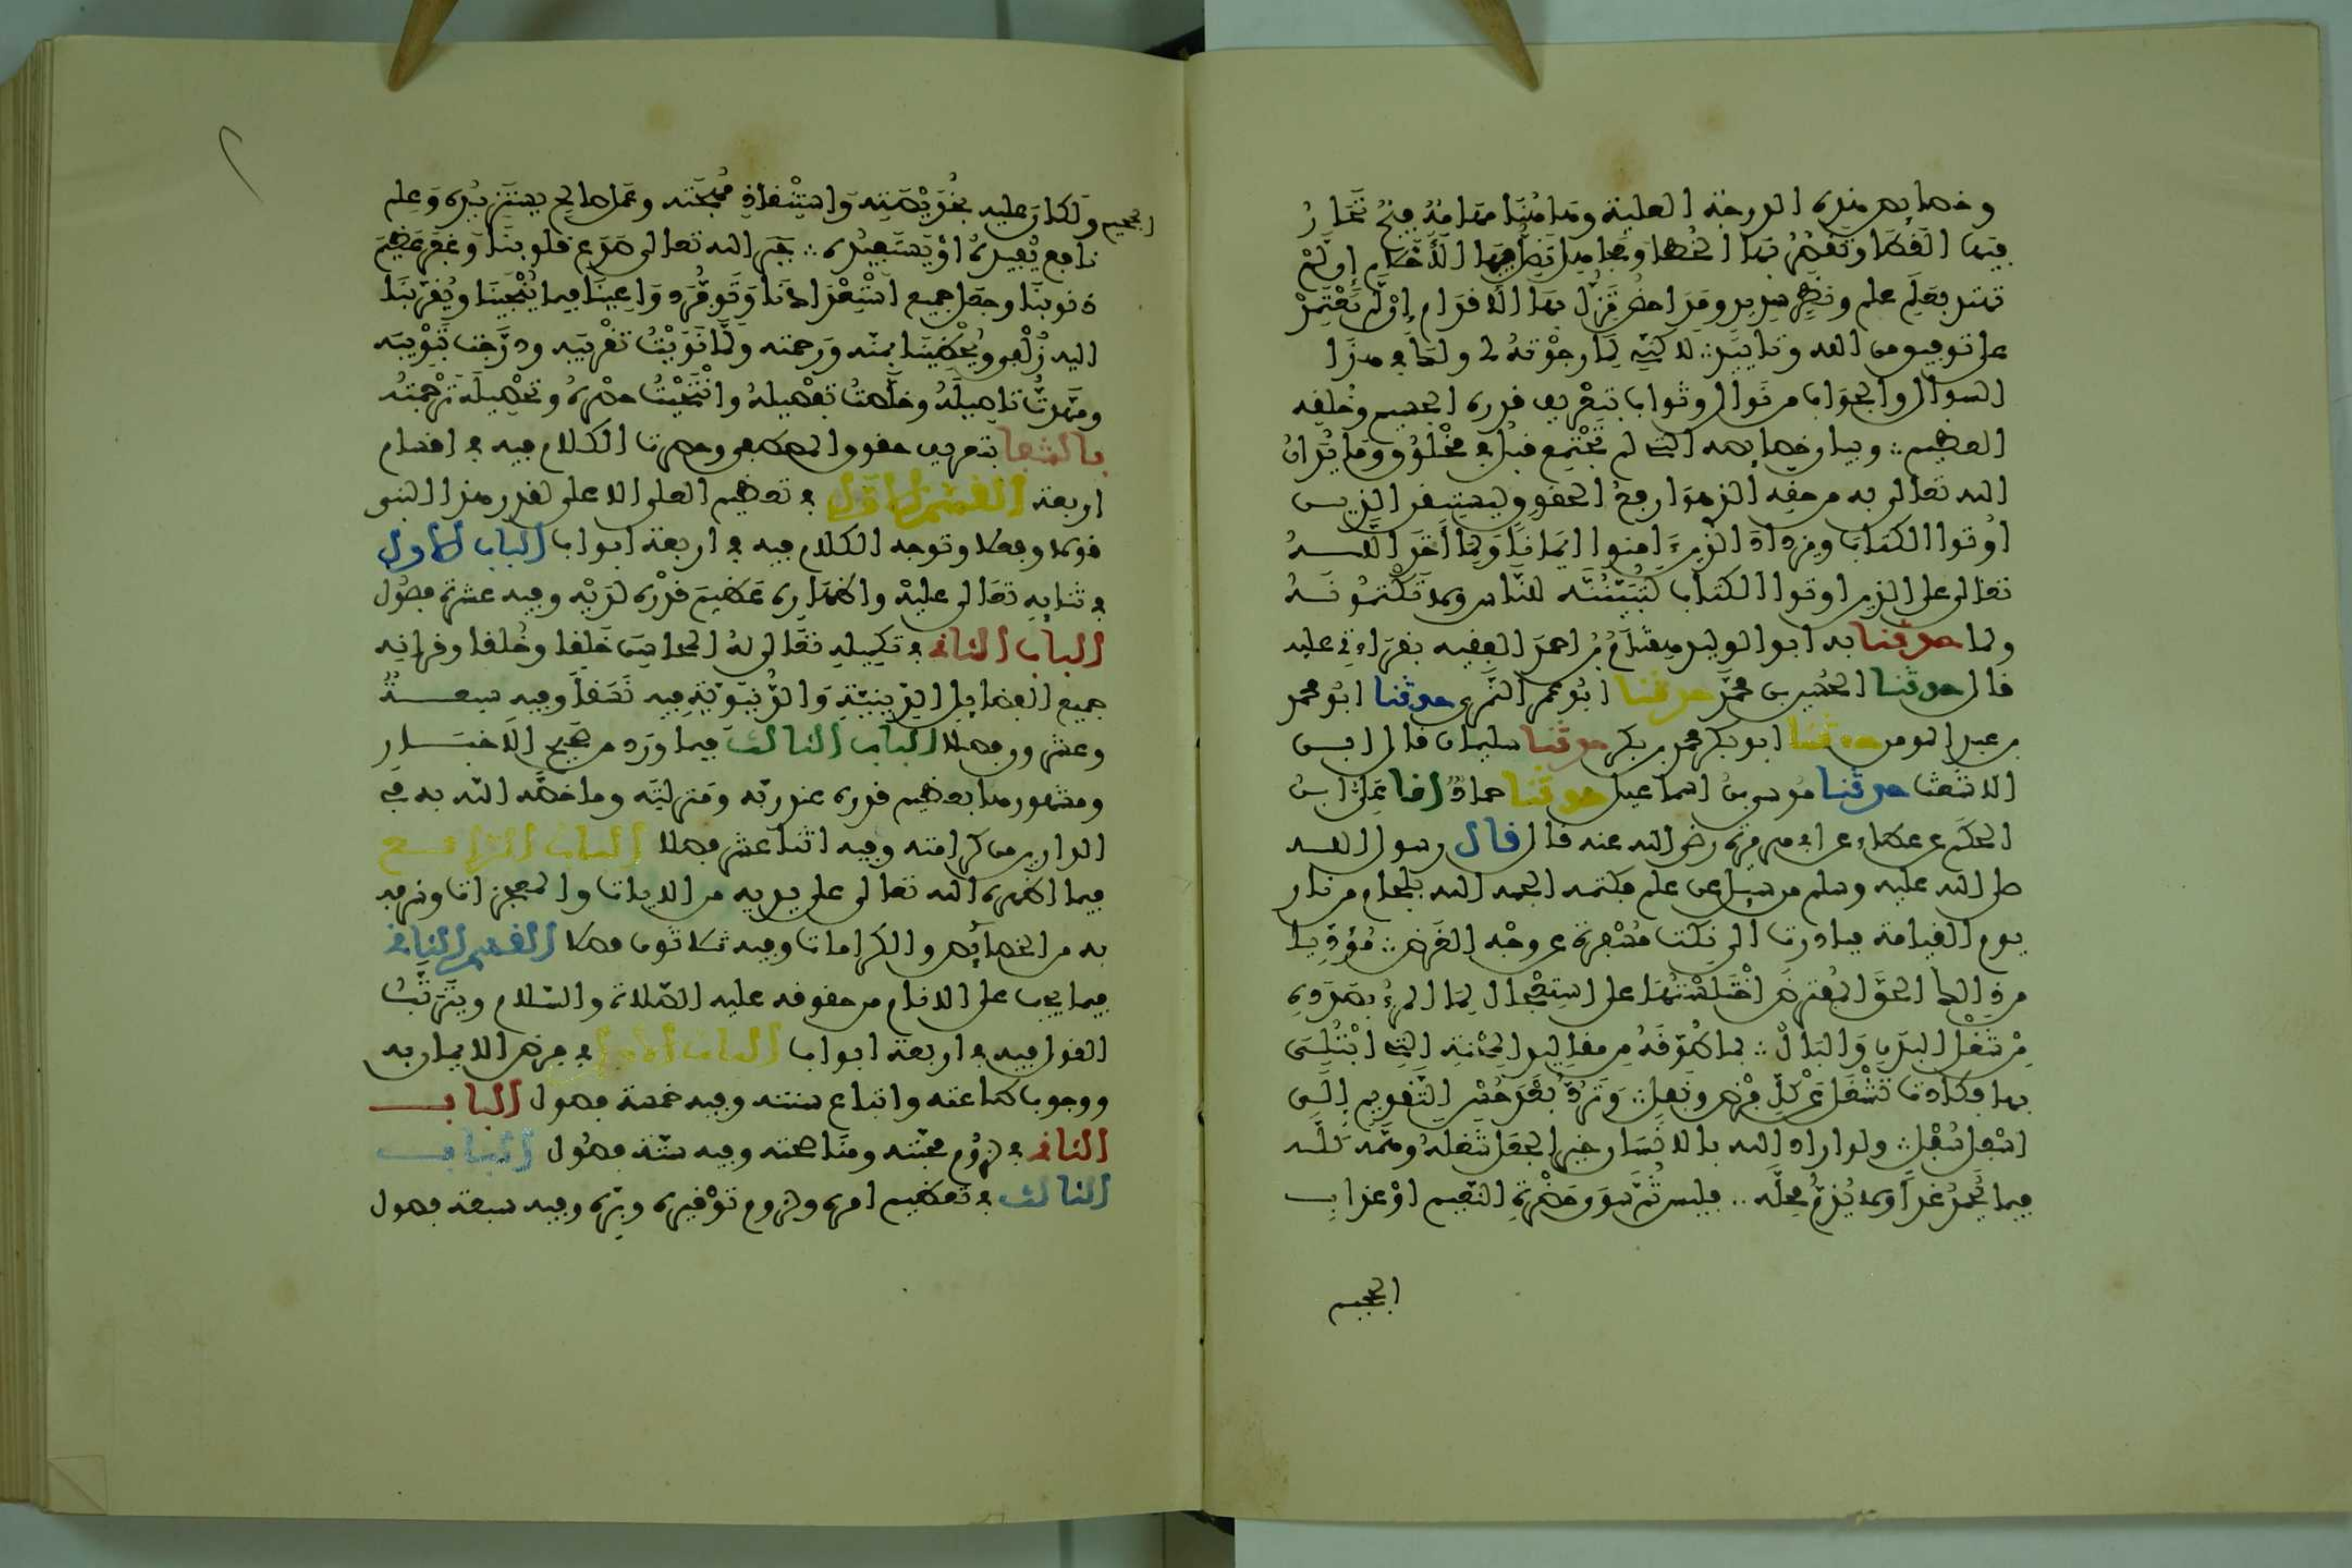 وخصايص هذه الدرجة العلية وما هنا مهامه فيح تحار
فيها القطا وتقصر بها الخطا ومجاهل تضل فيها الأحلام إن لم
تهتد بعلم علم ونظر سديد ومداحض تزل بها الاقدام إن لم تعتمد
على توفيق من الله وتاييد لاكني لما رجوته لي ولك في هذا
السوال والجواب من نوال وثواب بتعريف قدره الجسيم وخلقه
العظيم وبيان خصايصه التي لم تجتمع قبل في مخلوق وما يدان
الله تعالى به من حقه الذي هو ارفع الحقوق ليستيقن الذين
اوتوا الكتاب ويزداد الذين ءامنوا ايمانا ولما أخذ اللـــه
تعالى على الذين اوتوا الكتاب لتبيننه للناس ولا تكتمونـــه
ولما حدثنا به ابو الوليد هشام بن احمد الفقيه بقراءتي عليه
قال حدثنا الحسين بن محمد حدثنا ابو عمر النمري حدثنا ابو محمد
بن عبد المومن حدثنا ابو بكر محمد بن بكر حدثنا سليمان قال ابن
الاشعث حدثنا موسى بن اسماعيل حدثنا حماد انا علي ابن
الحكم عن عطاء عن ابي هريرة رضي الله عنه قال قال رسول اللـــه
صلى الله عليه وسلم من سيل عن علم فكتمه الجمه الله بلجام من نار
يوم القيامة فبادرت الى نكت مسفرة عن وجه الغرض مؤديا
من ذالك الحق المفترض اختلستها على استعجال لما المرء بصدده
من شغل البدن والبال بما طوقه من مقاليد المحنة التي ابتلي
بها فكادت تشغل عن كل فرض ونفل وترد بعد حسن التقويم الى
اسفل سفل ولو اراد الله بالانسان خيرا لجعل شغله وهمه كلـــه
فيما يحمد غدا ولا يذم محله فليس ثم سوى حضرة النعيم او عذاب
الجحيم
الجحيم ولكان عليه بخويصته واستنقاذ مهجته وعمل صالح يستزيده وعلم
نافع يفيده او يستفيده جبر الله تعالى صدع قلوبنا وغفر عظيم
ذنوبنا وجعل جميع استعدادنا وتوفر دواعينا فيما ينجينا ويقربنا
اليه زلفى ويحظينا بمنه ورحمته ولما نويت تقريبه ودرجت تبويبه
ومهدت تاصيله وخلصت تفصيله وانتحيت حصره وتحصيله ترجمته
بالشفا بتعريف حقوق المصطفى وحصرت الكلام فيه في اقسام
اربعة القسم الاول في تعظيم العلي الاعلى لقدر هذا النبي
قولا وفعلا وتوجه الكلام فيه في اربعة ابواب الباب الاول
في ثنايه تعالى عليه واظهاره عظيم قدره لديه وفيه عشرة فصول
الباب الثاني في تكميله تعالى له المحاسن خلقا وخلقا وقرانه
جميع الفضايل الدينية والدنيوية فيه نسقا وفيه سبعـــة
وعشرون فصلا الباب الثالث فيما ورد من صحيح الاخبـــار
ومشهورها بعظيم قدره عند ربه ومنزلته وما خصه الله به في
الدارين من كرامته وفيه اثنا عشر فصلا الباب الرابـــع
فيما اظهره الله تعالى على يديه من الايات والمعجزات وشرفه
به من الخصائص والكرامات وفيه ثلاثون فصلا القسم الثاني
فيما يجب على الانام من حقوقه عليه الصلاة والسلام ويترتب
القول فيه في اربعة ابواب الباب الاول في فرض الايمان به
ووجوب طاعته واتباع سنته وفيه خمسة فصول البـــاب
الثاني في لزوم محبته ومناصحته وفيه ستة فصول البـــاب
الثالث في تعظيم امره ولزوم توقيره وبره وفيه سبعة فصول